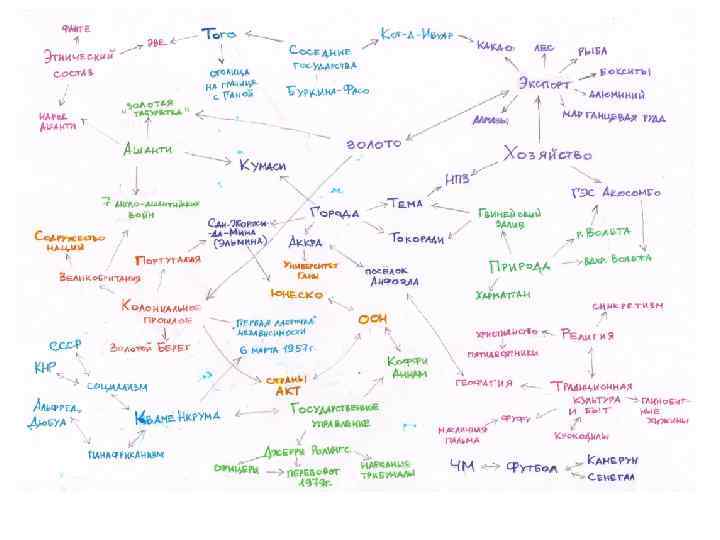 ФАНТЕ
ЭТНИЧЕСКИЙ
СОСТАВ
НАРОД
АШАНТИ
ЭВЕ
ТОГО
СТОЛИЦА
НА ГРАНИЦЕ
С ГАНОЙ
СОСЕДНИЕ
ГОСУДАРСТВА
БУРКИНА-ФАСО
КОТ-Д-ИВУАР
КАКАО
ЛЕС
РЫБА
БОКСИТЫ
ЭКСПОРТ
АЛЮМИНИЙ
МАРГАНЦЕВАЯ РУДА
АЛМАЗЫ
"ЗОЛОТАЯ
ТАБУРЕТКА"
АШАНТИ
ЗОЛОТО
КУМАСИ
ХОЗЯЙСТВО
НПЗ
ГЭС АКОСОМБО
7 АНГЛО-АШАНТИЙСКИХ
ВОЙН
САН-ЖОРЖИ-
-ДА-МИНА
(ЭЛЬМИНА)
ГОРОДА
ТЕМА
ГВИНЕЙСКИЙ
ЗАЛИВ
Р. ВОЛЬТА
СОДРУЖЕСТВО
НАЦИЙ
АККРА
ТАКОРАДИ
ПОРТУГАЛИЯ
ВЕЛИКОБРИТАНИЯ
УНИВЕРСИТЕТ
ГАНЫ
ПОСЕЛОК
ПРИРОДА
ВДХР. ВОЛЬТА
ЮНЕСКО
ХАРМАТТАН
КОЛОНИАЛЬНОЕ
ПРОШЛОЕ
СИНКРЕТИЗМ
"ПЕРВАЯ ЛАСТОЧКА"
НЕЗАВИСИМОСТИ
ООН
ХРИСТИАНСТВО
РЕЛИГИЯ
СССР
ЗОЛОТОЙ БЕРЕГ
6 МАРТА 1957г.
ПЯТИДЕСЯТНИКИ
КНР
КОФФИ
АННАН
СОЦИАЛИЗМ
СТРАНЫ
АКТ
ГЕОГРАФИЯ
ТРАДИЦИОННАЯ
КУЛЬТУРА
И БЫТ
ГЛИНОБИТ-
НЫЕ
ХИЖИНЫ
АЛЬФРЕД
ДЮБУА
КВАМЕ НКРУМА
ГОСУДАРСТВЕННОЕ
УПРАВЛЕНИЕ
ФУФУ
МАСЛИЧНАЯ
ПАЛЬМА
КРОКОДИЛЫ
ПАНАФРИКАНИЗМ
ДЖЕРРИ РОЛИНГС
ОФИЦЕРЫ
ПЕРЕВОРОТ
1979г.
НАРОДНЫЕ
ТРИБУНАЛЫ
ЧМ
ФУТБОЛ
КАМЕРУН
СЕНЕГАЛ